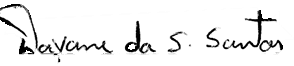 Dayane da S. Santos